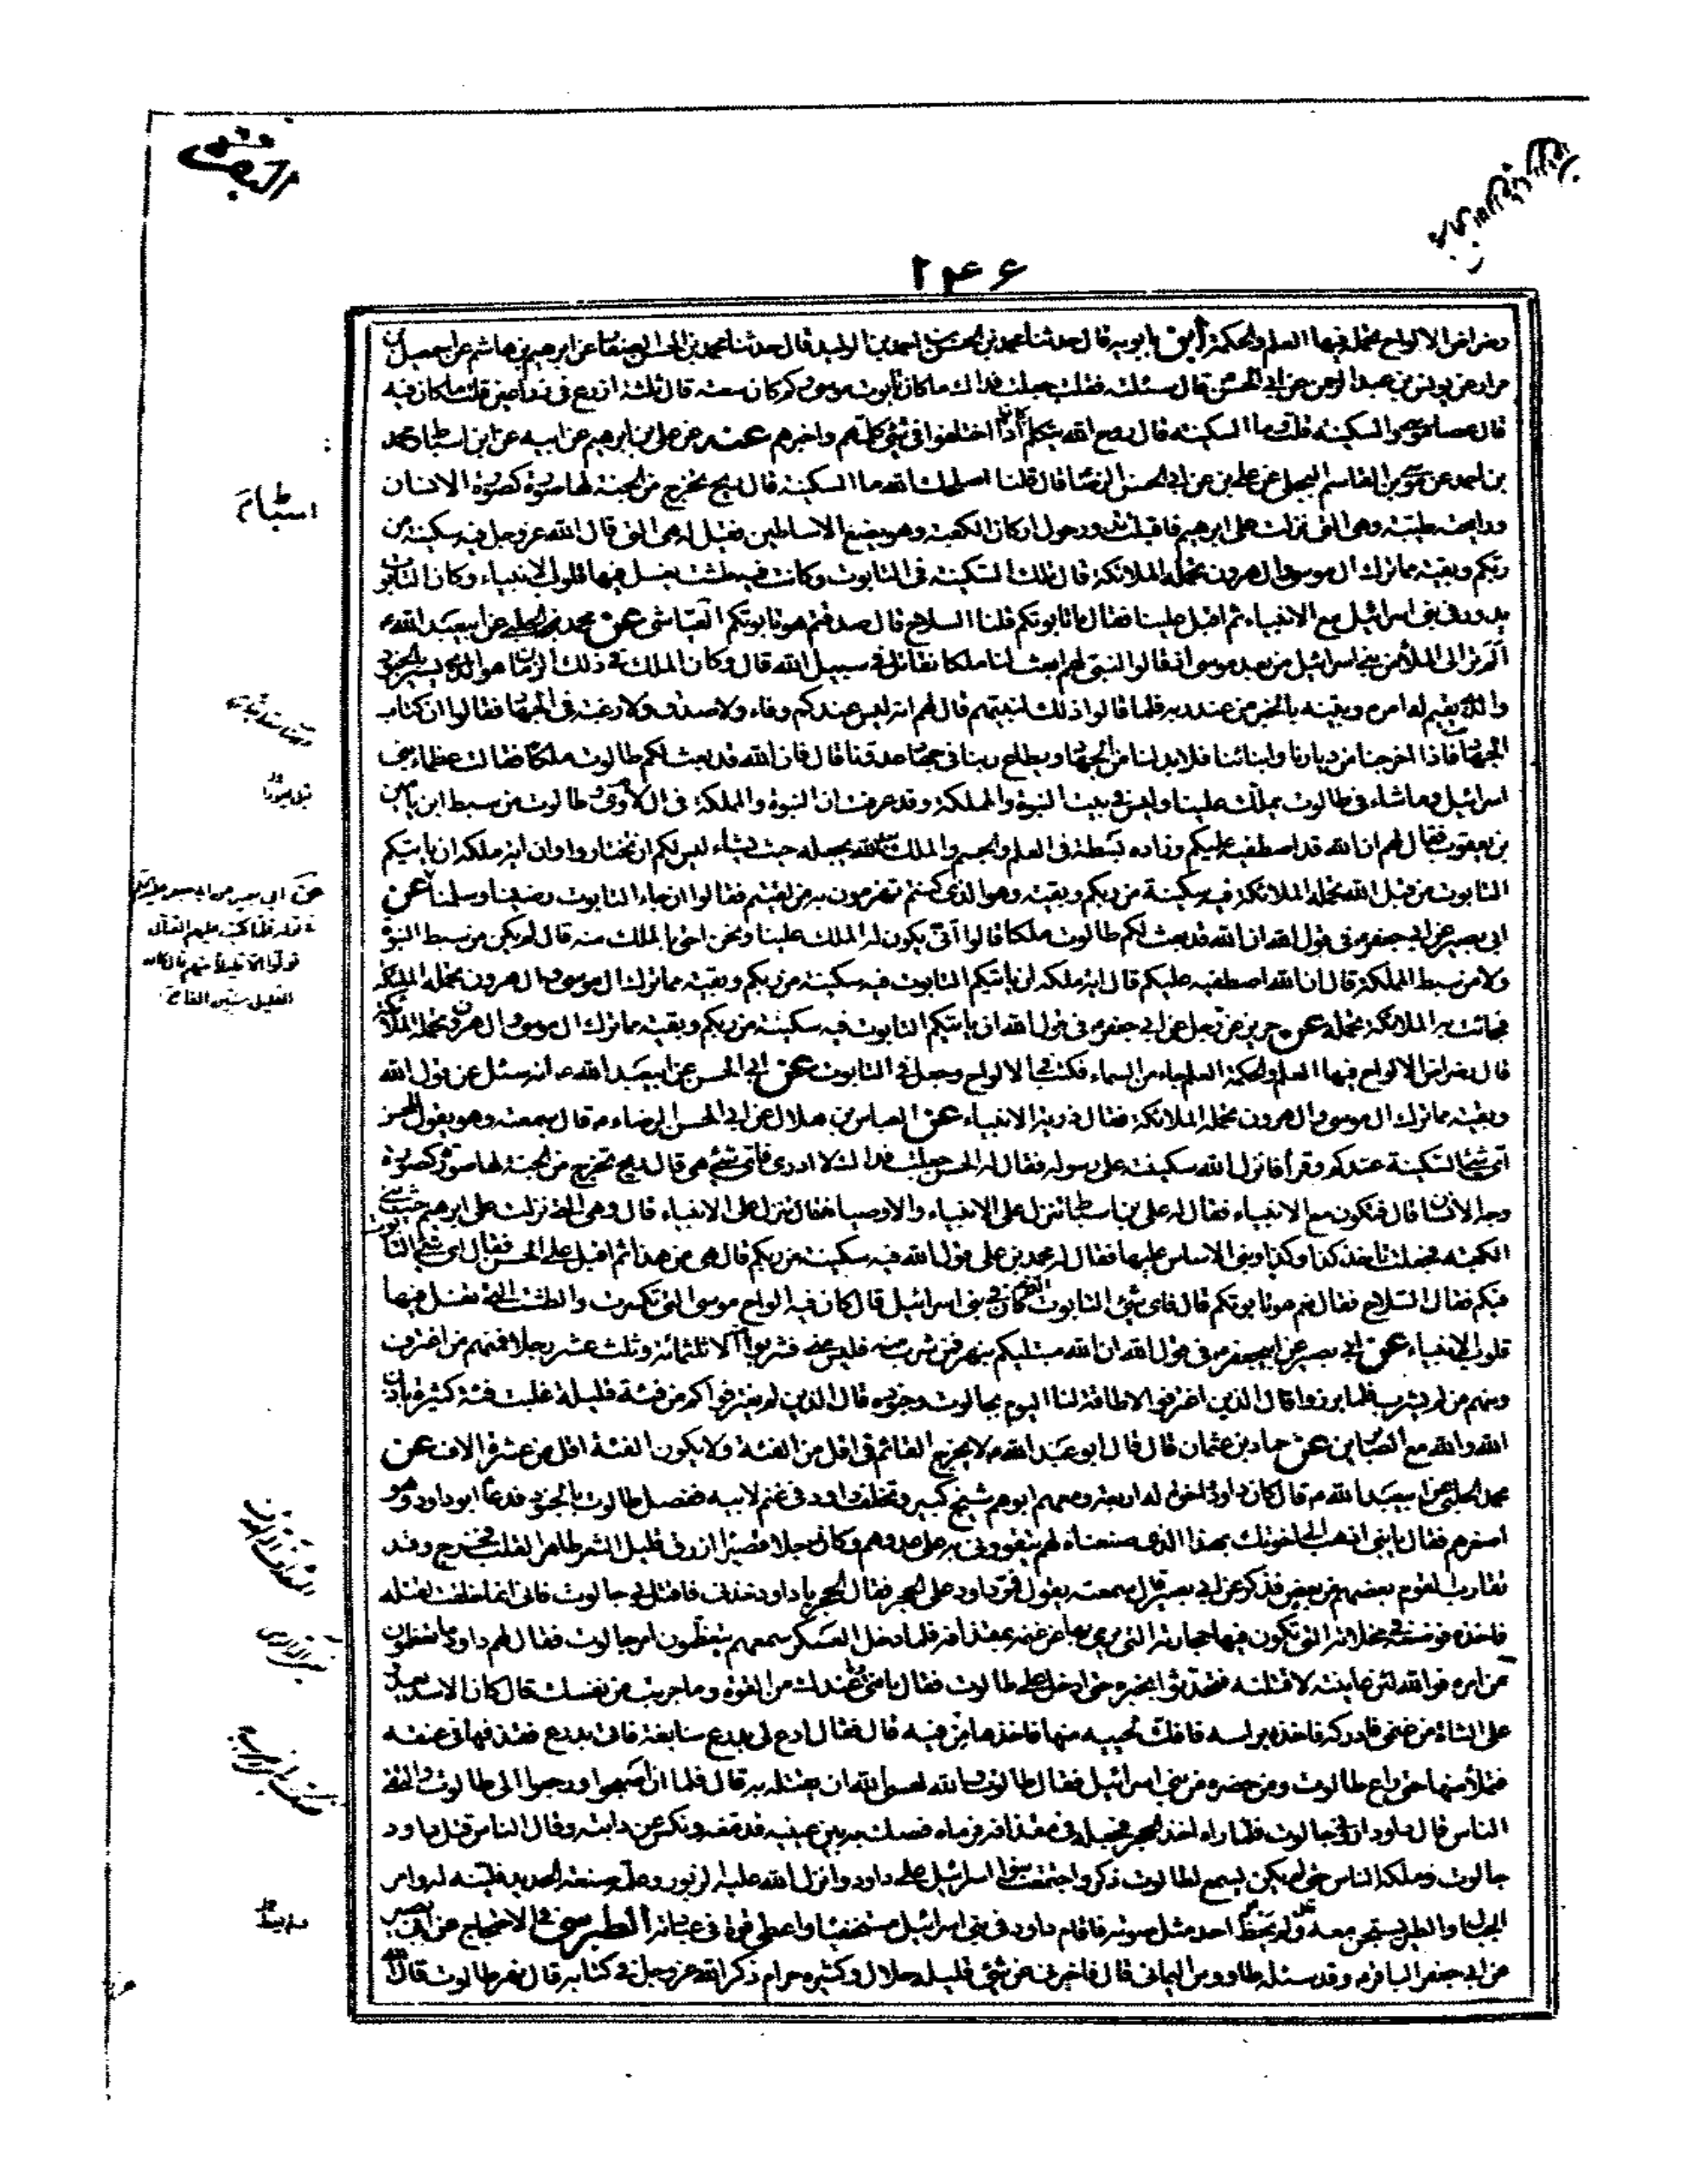 البقرة
١٤٦
رضراض الالواح مخلد فيها العلم والحكمة ابن بابويه قال حدثنا محمد بن الحسن بن احمد بن الوليد قال حدثنا محمد بن الحسن الصفار عن ابرهيم بن هاشم عن اسمعيل بن
مرار عن يونس بن عبد الرحمن عن ابى الحسن قال سئلته فقلت جعلت فداك ما كان تابوت موسى وكم كان سعته قال ثلثة اذرع فى ذراعين قلت ما كان فيه
قال عصا موسى والسكينة قلت وما السكينة قال روح الله يتكلم كانوا اذا اختلفوا فى شئ كلمهم واخبرهم عنه عن على بن ابرهيم عن ابيه عن ابن اسباط محمد
بن احمد عن موسى بن القاسم البجلى عن على بن عن ابى الحسن الرضا قال قلنا اصلحك الله ما السكينة قال ريح تخرج من الجنة لها صورة كصورة الانسان
ورايحة طيبة وهى التى نزلت على ابرهيم فاقبلت تدور حول اركان الكعبة وهو يضع الاساطين فقيل له هى التى قال الله عز وجل فيه سكينة من
ربكم وبقية مما ترك ال موسى وال هرون تحمله الملائكة قال تلك السكينة فى التابوت وكانت فيه طشت يغسل فيها قلوب الانبياء وكان التابوت
يدور فى بنى اسرائيل مع الانبياء ثم اقبل علينا فقال ما تابوتكم قلنا السلاح قال صدقتم هو تابوتكم العياشى عن محمد الحلبى عن ابى عبد الله ع
الم تر الى الملأ من بنى اسرائيل من بعد موسى اذ قالوا لنبى لهم ابعث لنا ملكا نقاتل فى سبيل الله قال وكان الملك فى ذلك الزمان هو الذى يسير بالجنود
والنبى يقيم له امره وينبئه بالخبر من عند ربه فلما قالوا ذلك لنبيهم قال لهم انه ليس عندكم وفاء ولا صدق ولا رغبة فى الجهاد فقالوا ان كتاب
الجهاد فاذا اخرجنا من ديارنا وابنائنا فلا بد لنا من الجهاد ويطلع ربنا فى جهاد عدونا قال فان الله قد بعث لكم طالوت ملكا فقالت عظماء بنى
اسرائيل وما شاء فى طالوت يملك علينا وليس فى بيت النبوة والمملكة وقد عرفت ان النبوة والمملكة فى ال لاوى وطالوت من سبط ابن يامين
بن يعقوب فقال لهم ان الله قد اصطفيه عليكم وزاده بسطة فى العلم والجسم والملك بيد الله يجعله حيث يشاء ليس لكم ان تختاروا وان اية ملكه ان ياتيكم
التابوت من قبل الله تحمله الملائكة فيه سكينة من ربكم وبقية وهو الذى كنتم تهزمون به من لقيتم فقالوا ان جاء التابوت رضينا وسلمنا عن
ابى بصير عن ابى جعفر ع فى قول الله ان الله قد بعث لكم طالوت ملكا قالوا انى يكون له الملك علينا ونحن احق بالملك منه قال لم يكن من سبط النبوة
ولا من سبط المملكة قال ان الله اصطفيه عليكم قال اية ملكه ان ياتيكم التابوت فيه سكينة من ربكم وبقية مما ترك ال موسى وال هرون تحمله الملائكة
فجائت به الملائكة تحمله عن حريز عن رجل عن ابى جعفر ع فى قول الله ان ياتيكم التابوت فيه سكينة من ربكم وبقية مما ترك ال موسى وال هرون تحمله الملائكة
قال رضراض الالواح فيها العلم والحكمة العلم جاء من السماء فكتب فى الالواح وجعل فى التابوت عن ابى الحسن عن ابى عبد الله ع انه سئل عن قول الله
وبقية مما ترك ال موسى وال هرون تحمله الملائكة فقال ذرية الانبياء عن العباس بن هلال عن ابى الحسن الرضاء ع قال سمعته وهو يقول للحسن
اى شئ السكينة عندكم وقرأ فانزل الله سكينته على رسوله فقال له الحسن جعلت فداك لا ادرى فاى شئ هى قال ريح تخرج من الجنة لها صورة كصورة
وجه الانسان قال فتكون مع الانبياء فقال له على بن اسباط تنزل على الانبياء والاوصياء فقال تنزل على الانبياء قال وهى التى نزلت على ابرهيم حيث بنى
الكعبة فجعلت تاخذ كذا وكذا وبنى الاساس عليها فقال له محمد بن على قول الله فيه سكينة من ربكم قال هى من هذا ثم اقبل على الحسن فقال اى شئ التابوت
فيكم فقال السلاح فقال نعم هو تابوتكم قال فاى شئ التابوت الذى كان فى بنى اسرائيل قال كان فيه الواح موسى التى تكسرت والطشت التى تغسل فيها
قلوب الانبياء عن ابى بصير عن ابى جعفر ع فى قول الله ان الله مبتليكم بنهر فمن شرب منه فليس منى فشربوا منه الا ثلثمائة وثلث عشر رجلا فمنهم من اغترف
ومنهم من لم يشرب فلما برزوا قال الذين اغترفوا لا طاقة لنا اليوم بجالوت وجنوده قال الذين لم يغترفوا كم من فئة قليلة غلبت فئة كثيرة باذن
الله والله مع الصابرين عن حماد بن عثمان قال قال ابو عبد الله ع لا يخرج القائم فى اقل من الفئة ولا يكون الفئة اقل من عشرة الاف عن
محمد الحلبى عن ابى عبد الله ع قال كان داود واخوة له اربعة ومعهم ابوهم شيخ كبير وتخلف داود فى غنم لابيه ففصل طالوت بالجنود فدعا ابو داود وهو
اصغرهم فقال يا بنى اذهب الى اخوتك بهذا الذى صنعناه لهم يتقوون به على عدوهم وكان رجلا قصيرا ازرق قليل الشعر طاهر القلب فخرج وقد
تقارب القوم بعضهم من بعض فذكر عن ابى بصير قال سمعته يقول فمر داود على الحجر فقال الحجر يا داود خذنى فاقتل بى جالوت فانى انما خلقت لقتله
فاخذه فوضعه فى مخلاته التى تكون فيها حجارته التى يرمى بها عن غنمه بمقذافه فلما دخل العسكر سمعهم يتعظمون امر جالوت فقال لهم داود ما تعظمون
من امره فوالله لئن عاينته لاقتلنه فتحدثوا بخبره حتى ادخل على طالوت فقال يا فتى وما عندك من القوة وما جربت من نفسك قال كان الاسد يعدو
على الشاة من غنمى فادركه فاخذ براسه فافك لحييه منها فاخذها من فيه قال فقال ادع لى بدرع سابغة فاتى بدرع فقذفها فى عنقه
فتملأ منها حتى راع طالوت ومن حضره من بنى اسرائيل فقال طالوت والله لعسى الله ان يقتله به قال فلما ان اصبحوا ورجعوا الى طالوت والتقى
الناس قال داود ارونى جالوت فلما راه اخذ الحجر فجعله فى مقذافه فرماه فصك به بين عينيه فدمغه ونكس عن دابته وقال الناس قتل داود
جالوت وملكه الناس حتى لم يكن يسمع لطالوت ذكر واجتمعت بنوا اسرائيل على داود وانزل الله عليه الزبور وعلمه صنعة الحديد فلينه له وامر
الجبال والطير يسبحن معه قال ولم يعط احد مثل صوته فاقام داود فى بنى اسرائيل مستخفيا واعطى قوة فى عبادته الطبرسى فى الاحتجاج عن ابى بصير
عن ابى جعفر الباقر ع وقد سئله طاووس اليمانى قال فاخبرنى عن شئ قليله حلال وكثيره حرام ذكر الله عز وجل فى كتابه قال نهر طالوت قال الله
اسباط
عن ابى بصير عن ابى جعفر
فى قوله فلما كتب عليهم القتال
تولوا الا قليلا منهم قال كان
القليل ستين الفا